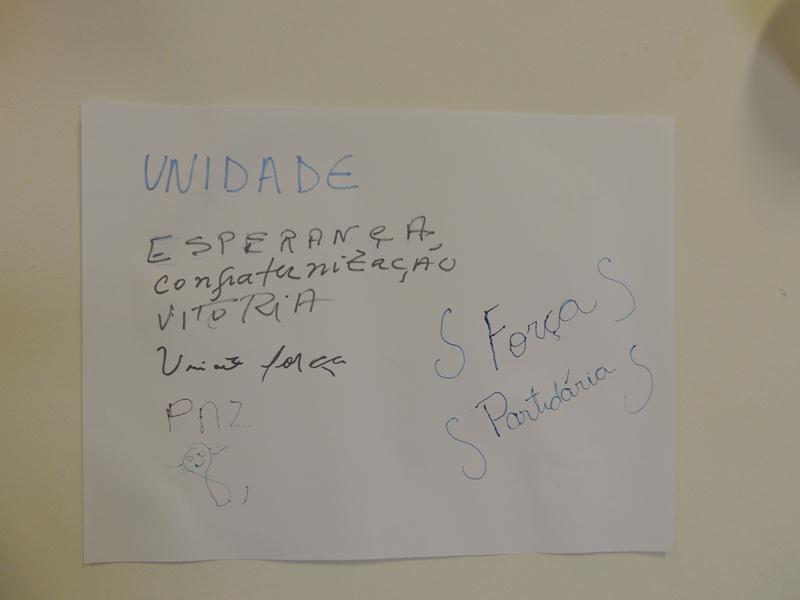 UNIDADE
ESPERANÇA,
confraternização
VITORIA
força
PAZ
Força
Partidária